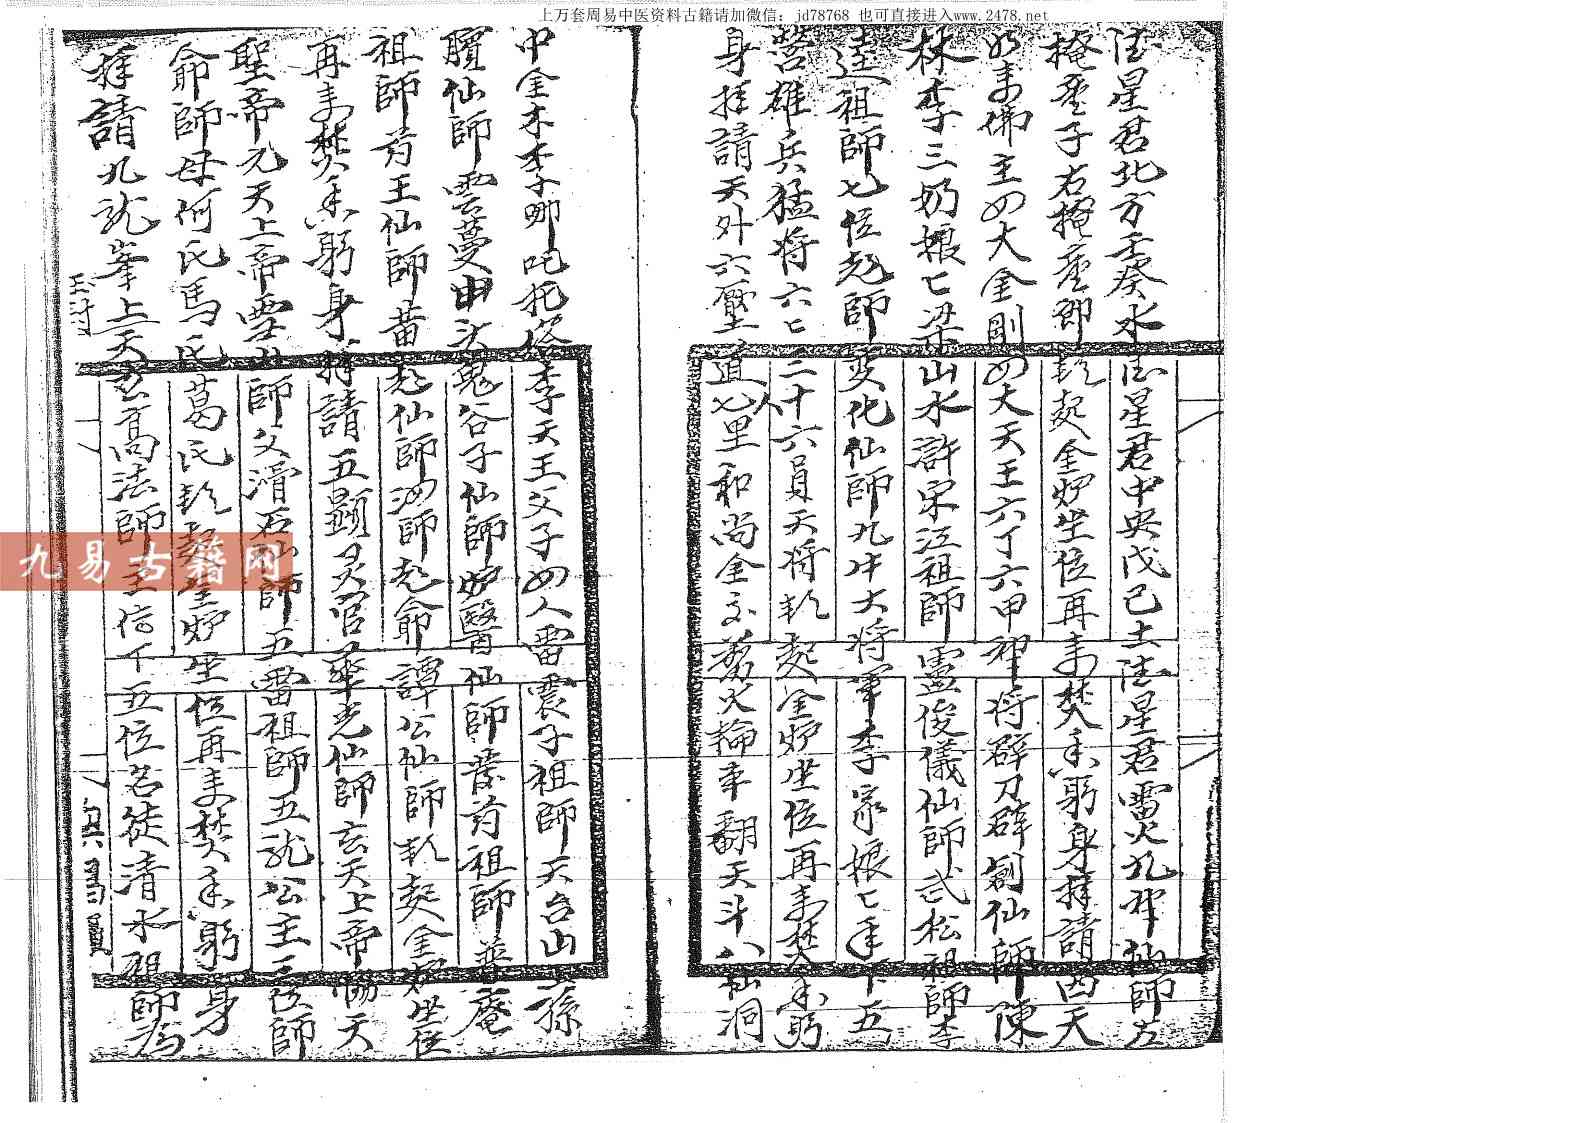 上万套周易中医资料古籍请加微信：jd78768 也可直接进入www.2478.net
德星君北方壬癸水德星君中央戊己土德星君雷火九神仙師左
掩童子右掩童郎金炉坐位再来焚香躬身拜請四天
如来佛主四大金剛四大天王六丁六甲神将辟刀辟劍仙師陳
林李三奶娘七梁山水滸宋江祖師靈俊儀仙師武松祖師李
逵祖師七位老師変化仙師九牛大将軍李家娘七手下五
營雄兵猛将六七三十六員天将金炉坐位再来焚香躬
身拜請天外六壓道人七里和尚金交剪火輪車翻天斗八仙洞
中金木李哪吒托塔李天王父子四人雷震子祖師天台山上孫
臏仙師雲夢山鬼谷子仙師炉醫仙師藥祖師普庵
祖師王仙師黄老仙師師老爺譚公仙師金炉坐位
再来焚香躬身拜請五顕灵官華光仙師玄天上帝天
聖帝元天上帝師父滑石仙師五雷祖師五龙公主三位師
爺師母何氏馬氏葛氏坐炉坐位再来焚香躬身
拜請九龙峯上天高法師五位名徒清水祖師
九易古籍网